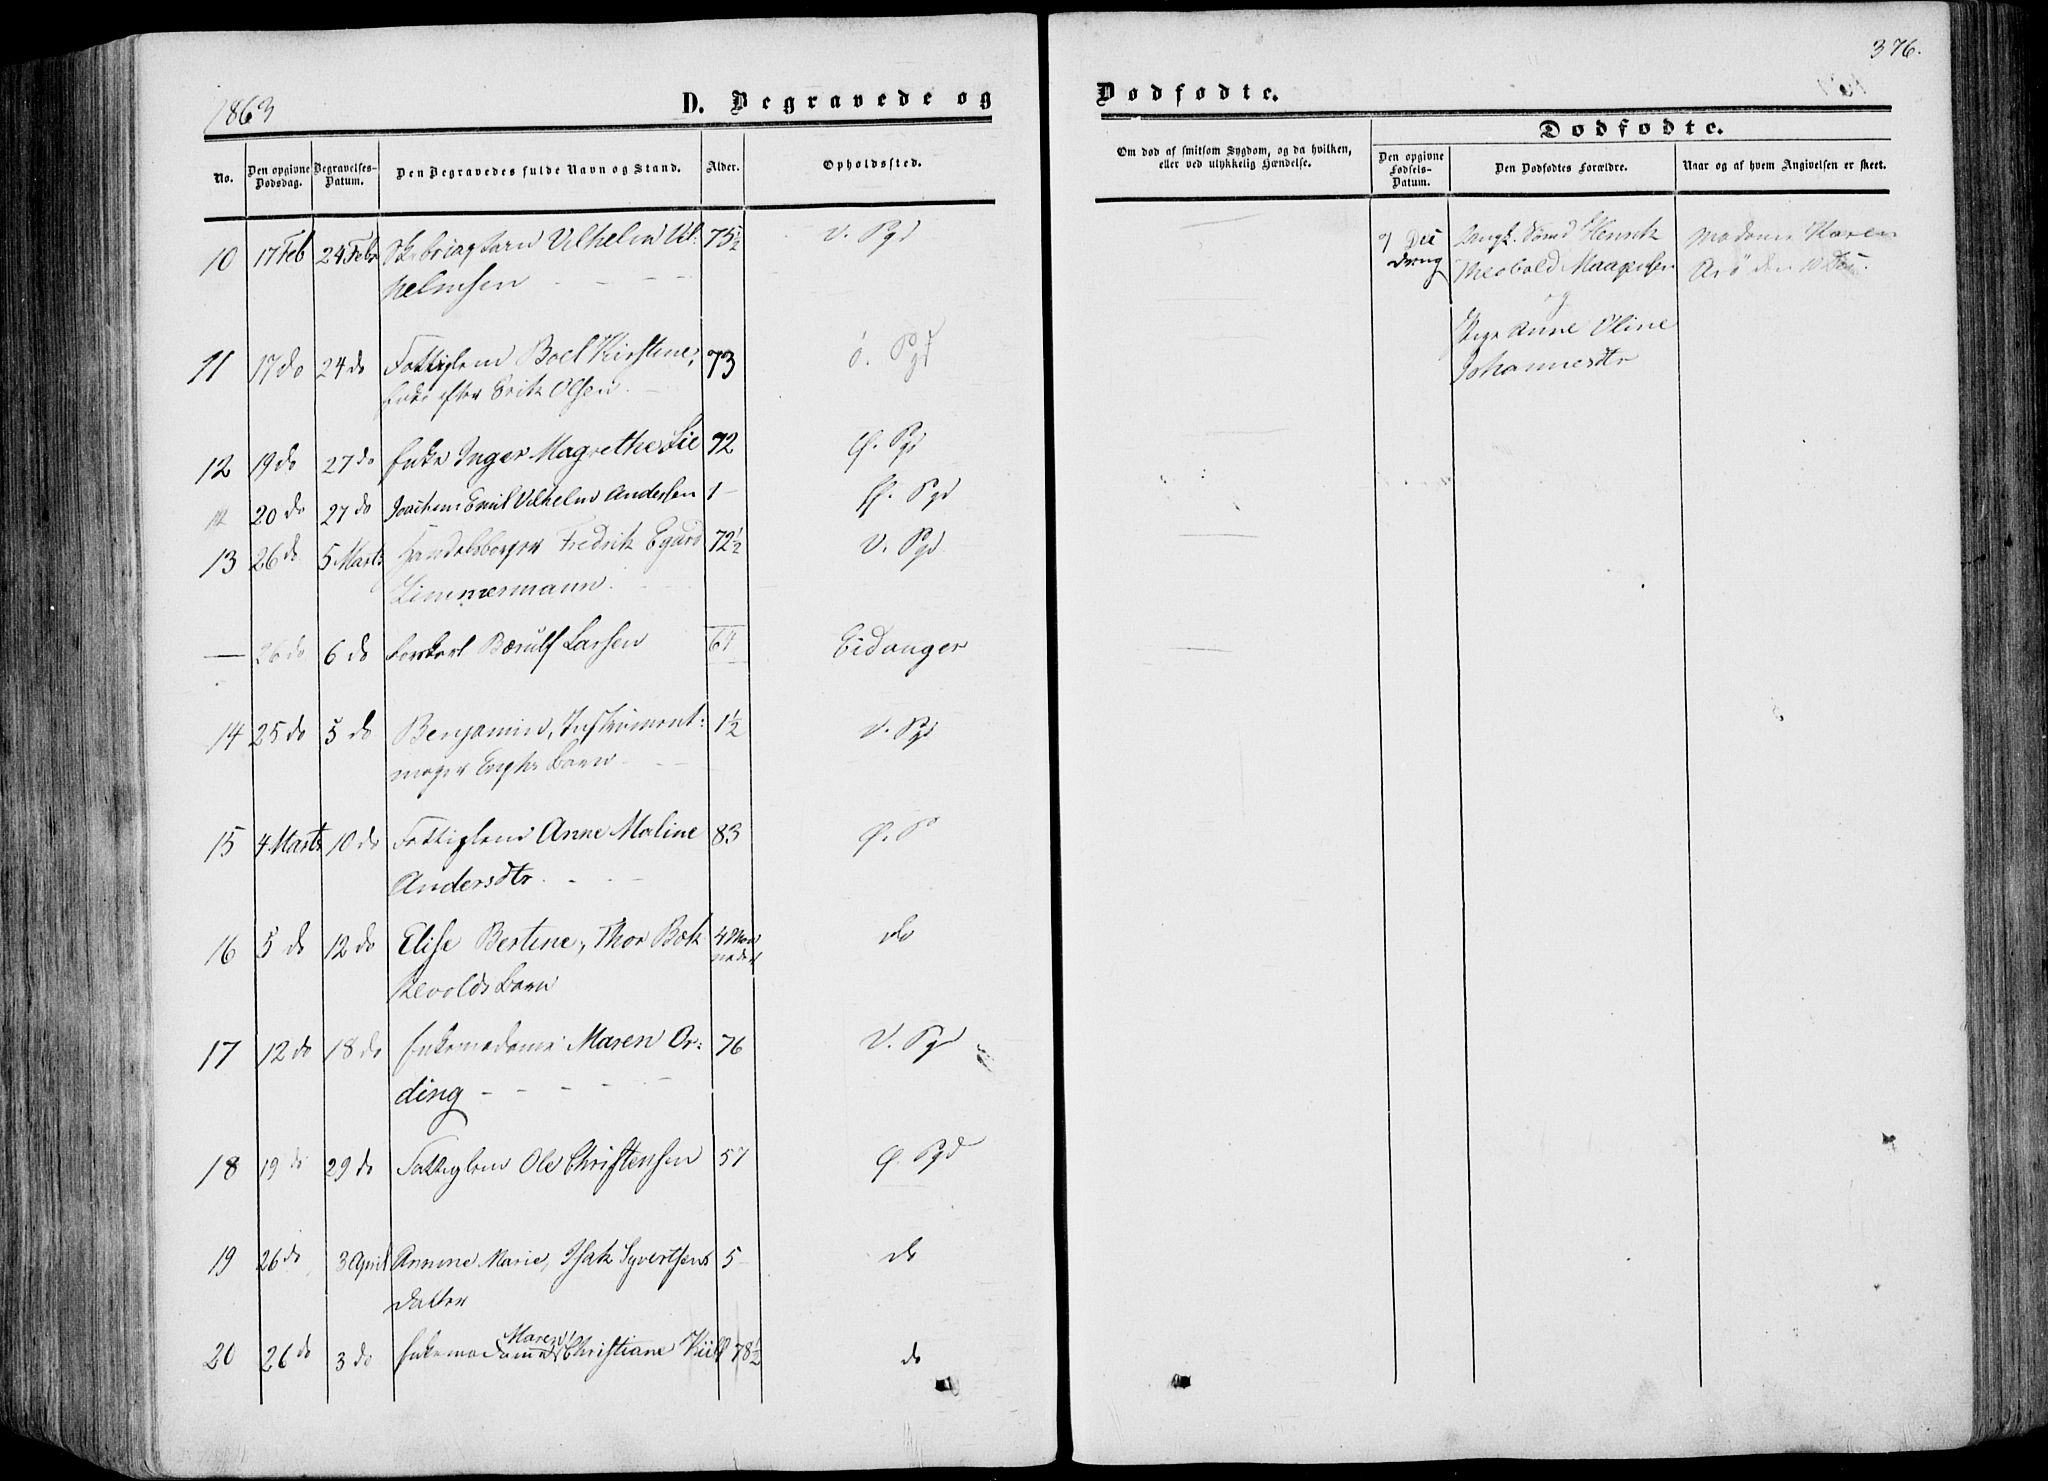 376.
1863
D. Begravede og
Dødfødte.
No.
Den opgivne Dødsdag.
Begravelses-Datum.
Den Begravedes fulde Navn og Stand.
Alder.
Opholdssted.
Om død af smitsom Sygdom, og da hvilken, eller ved ulykkelig Hændelse.
Dødfødte.
Den opgivne Fødsels-Datum.
Den Dødfødtes Forældre.
Naar og af hvem Angivelsen er skeet.
10 17 Feb 24 Febr Vilhelm Vil: 75½ V. Pgd
helmsen
11 17 do 24 do Fattiglem Boel Kirstine, 73 Ø. Pgd
Enke efter Erik Olsen
12 19 do 27 do Enke Inger Magrethe Lie 72 Ø. Pgd
20 do 27 do Joachim Emil Vilhelm Andersen 1 Ø. Pgd
13 26 do 5 Marts Handelsborger Fredrik 72½ V. Pgd
Zimmermann
— 26 do 6 do Larsen 64 Eidanger
14 25 do 5 do Benjamin, Instrument: 1½ V. Pgd
mager Barn
15 4 Marts 10 do Fattiglem Anne Maline 83 Ø. P
Andersdtr
16 5 do 12 do Elise Bertine, Thor Bok 4 Maa
neder do
Barn
17 12 do 18 do Enkemadame Maren Or: 76 V. Pgd
ding
18 19 do 29 do Fattiglem Ole Christensen 57 Ø. Pgd
19 26 do 3 April Annine Marie, Isak Syvertsens 5 do
Datter
Maren
20 26 do 3 do Enkemadame Christiane Kiil 78½ do
Henrik
Theobold
og
Pige Anne Oline
Johannesdtr
Madame Maren
Arø den 10